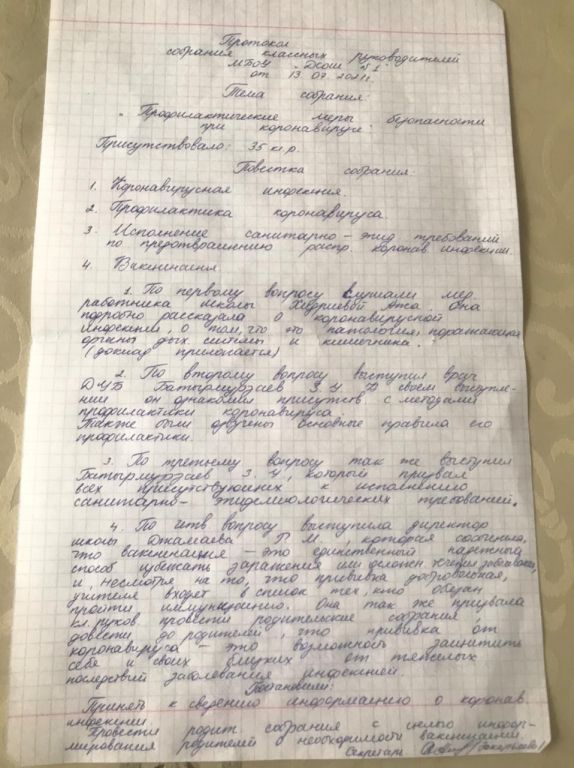 Протокол
собрания классных руководителей
МБОУ "ДСОШ №1"
от 13.07.2021г.
Тема собрания:
"Профилактические меры безопасности
при коронавирусе."
Присутствовало: 35 кл.р.
Повестка собрания:
1. Коронавирусная инфекция.
2. Профилактика коронавируса.
3. Исполнение санитарно-эпид требований
по предотвращению распр. коронав. инфекции.
4. Вакцинация
1. По первому вопросу слушали мед.
работника школы Она
подробно рассказала о коронавирусной
инфекции, о том, что это патология, поражающая
органы дых. системы и кишечника.
(доклад прилагается)
2. По второму вопросу выступил врач
ДУБ Батырмурзаев З.У. В своем выступле-
нии он ознакомил присутств. с методами
профилактики коронавируса.
Также были основные правила его
профилактики.
3. По третьему вопросу так же выступил
Батырмурзаев З.У, который призвал
всех присутствующих к исполнению
санитарно-эпидемиологических требований.
4. По четв вопросу выступила директор
школы Джамаева П.М., которая сообщила,
что вакцинация - это единственный надежный
способ избежать заражения или заболевания,
и, несмотря на то, что прививка добровольная,
учителя входят в список тех, кто обязан
пройти иммунизацию. Она так же призвала
кл. руков. провести родительские собрания,
довести до родителей, что прививка от
коронавируса - это возможность защитить
себя и своих близких от тяжелых
последствий заболевания инфекцией.
Постановили:
Принять к сведению информацию о коронав
инфекции.
Провести родит собрания с целью инфор-
мирования родителей о необходимости вакцинации.
Секретарь